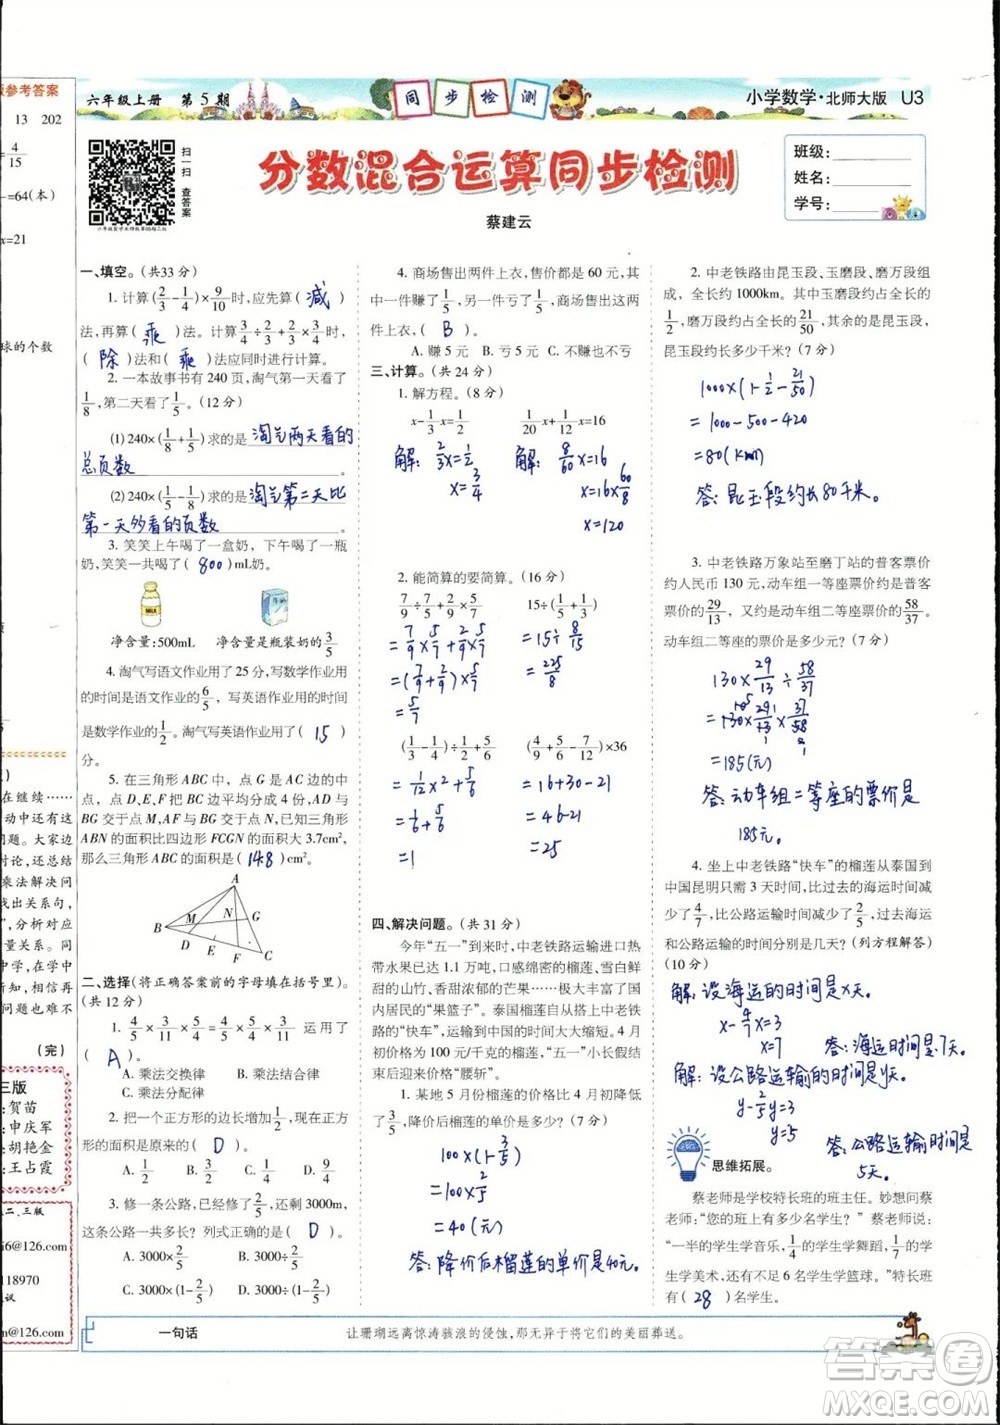 版参考答案
13 202
4/15
=64(本)
x=21
球的个数
在继续……
动中还有这
问题。大家边
讨论,还总结
乘法解决问
找出关系句
",分析对应
量关系。同
学中,学中
的,相信再
点也难不
(完)
三版
:贺苗
:申庆军
:胡艳金
:王占霞
二、三版
i6@126.com
118970
n@126.com
六年级上册 第5期
同步检测
小学数学·北师大版 U3
扫一扫 查答案
分数混合运算同步检测
蔡建云
班级:
姓名:
学号:
一、填空。(共33分)
1. 计算(2/3-1/4)×9/10时,应先算( 减 )
法,再算( 乘 )法。计算3/4÷2/3×1/4时,
( 除 )法和( 乘 )法应同时进行计算。
2. 一本故事书有240页,淘气第一天看了
1/8,第二天看了1/5。(12分)
(1)240×(1/8+1/5)求的是 淘气两天看的
总页数 。
(2)240×(1/5-1/8)求的是 淘气第二天比
第一天多看的页数 。
3. 笑笑上午喝了一盒奶,下午喝了一瓶
奶,笑笑一共喝了( 800 )mL奶。
MILK
净含量:500mL 净含量是瓶装奶的3/5
4. 淘气写语文作业用了25分,写数学作业
的时间是语文作业的6/5，写英语作业的时间是
数学作业的1/2。淘气写英语作业用了( 15 )
分。
5. 在三角形ABC中，点G是AC边的中
点，点D、E、F把BC边平均分成4份,AD与
BG交于点M,AE与BG交于点N,已知三角形
ABN的面积比四边形FCGN的面积大3.7cm²,
那么三角形ABC的面积是( 14.8 )cm²。
A
M N G
B
D E F C
二、选择(将正确答案前的字母填在括号里)。
(共12分)
1. 4/5×3/11×5/4=4/5×5/4×3/11 运用了
( A )。
A. 乘法交换律 B. 乘法结合律
C. 乘法分配律
2. 把一个正方形的边长增加1/2,现在正方
形的面积是原来的( D )。
A. 1/2 B. 1/4 C. 3/4 D. 9/4
3. 修一条公路,已经修了2/5,还剩3000m,
这条公路一共多长？列式正确的是( D )。
A. 3000×2/5 B. 3000÷2/5
C. 3000×(1-2/5) D. 3000÷(1-2/5)
4. 商场售出两件上衣,售价都是60元,其
中一件赚了1/5，另一件亏了1/5,商场售出这两
件上衣,( B )。
A. 赚5元 B. 亏5元 C. 不赚也不亏
三、计算。(共24分)
1. 解方程。(8分)
x-1/3x=1/2 1/20x÷3/8x=16
解: 2/3x=1/2 解: 8/60x=16
x=3/4 x=16×60/8
x=120
2. 能简算的要简算。(16分)
7/9÷7/5+2/9×5/7 15÷(1/5+1/3)
=7/9×5/7+2/9×5/7 =15÷8/15
=(7/9+2/9)×5/7 =225/8
=5/7
(1/3-1/4)÷1/2+5/6 (4/9+5/6-7/12)×36
=1/12×2+5/6 =16+30-21
=1/6+5/6 =46-21
=1 =25
四、解决问题。(共31分)
今年“五一”到来时,中老铁路运输进口热
带水果已超过1.1万吨,口感绵密的榴莲、雪白鲜
甜的山竹、香甜浓郁的芒果……极大丰富了国
内居民的“果篮子”。泰国榴莲搭上中老铁
路的“快车”,运输到中国的时间大大缩短。4月
均价100元/千克的榴莲,“五一”小长假后结束
后直接“腰斩”。
1. 某地5月份榴莲的价格比4月初降低
了3/5,降价后榴莲的单价是多少？(7分)
100×(1-3/5)
=100×2/5
=40(元)
答:降价后榴莲的单价是40元。
2. 中老铁路由昆玉段、玉磨段、磨万段组
成,全长约1000km。玉磨段约占全长的
1/2,磨万段约占全长的21/50,其余的是昆玉段,
昆玉段约长多少千米？(7分)
1000×(1-1/2-21/50)
=1000-500-420
=80(km)
答:昆玉段约长80千米。
3. 中老铁路万象站至磨丁站的普客票价
约人民币130元,动车组一等座票价约是普客
票价的29/13，又约是动车组二等座票价的58/37,
动车组二等座的票价是多少元？(7分)
130×29/13÷58/37
=130×29/13×37/58
=185(元)
答:动车组二等座的票价是
185元。
4. 坐上中老铁路“快车”的榴莲从泰国到
中国昆明只需3天时间，比过去的海运时间减少
了4/7,比公路运输的时间减少了2/5,过去海运
和公路运输的时间分别是几天？(列方程解答)
(10分)
解:设海运的时间是x天。
x-4/7x=3
x=7 答:海运时间是7天。
解:设公路运输的时间是y天。
y-2/5y=3
y=5 答:公路运输时间是
5天。
思维拓展。
蔡老师是学校特长班的班主任。妙想问蔡
老师:“您的班上有多少名学生？”蔡老师说:
“一半的学生学音乐,1/4的学生学舞蹈,1/7的学
生学美术,还有不足6名学生学篮球。”特长班
有( 28 )名学生。
一句话 让珊瑚远离惊涛骇浪的侵蚀,那无异于将它们的美丽葬送。
答案圈
MXQE.COM